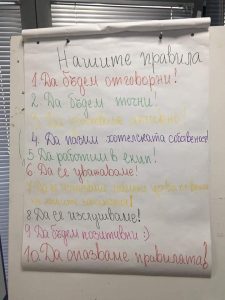 Нашите правила
1. Да бъдем отговорни!
2. Да бъдем точни!
3. Да
4. Да пазим хотелската собственост!
5 Да работим в екип!
6 Да се уважаваме!
7 Да
8 Да се изслушваме!
9 Да бъдем позитивни :)
10. Да опазваме правилата!